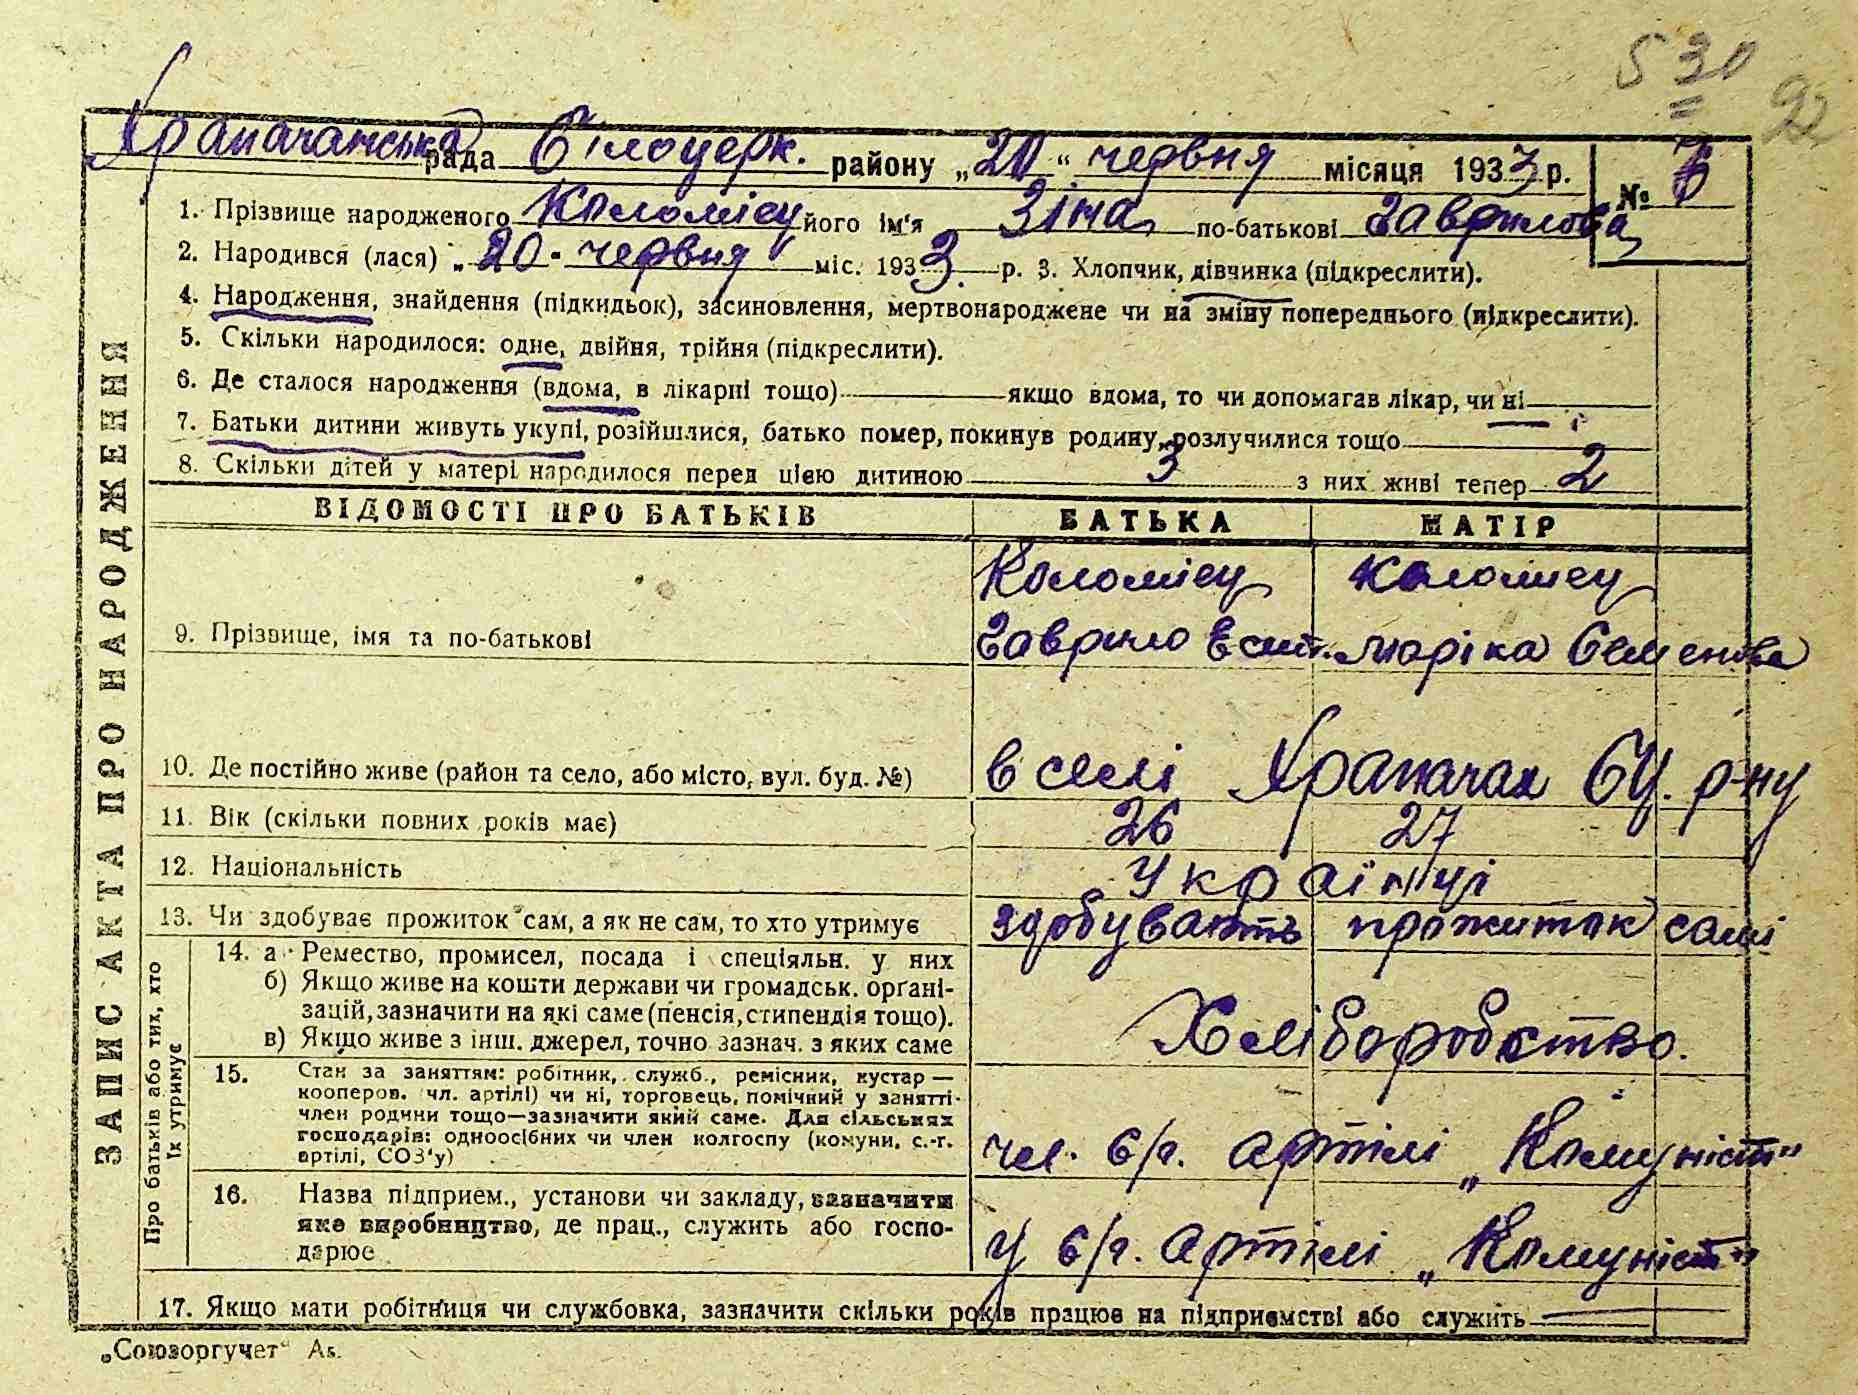 530
92
Храпачанська рада Білоцерк. району „20“ червня місяця 1933 р. № 6
1. Прізвище народженого Коломієц його ім'я Зіна по-батькові Гаврилова
2. Народився (лася) „20“ червня міс. 1933 р. 3. Хлопчик, дівчинка (підкреслити).
4. Народження, знайдення (підкидьок), засиновлення, мертвонароджене чи на зміну попереднього (підкреслити).
5. Скільки народилося: одне, двійня, трійня (підкреслити).
6. Де сталося народження (вдома, в лікарні тощо) якщо вдома, то чи допомагав лікар, чи ні
7. Батьки дитини живуть укупі, розійшлися, батько помер, покинув родину, розлучилися тощо
8. Скільки дітей у матері народилося перед цією дитиною 3 з них живі тепер 2
ВІДОМОСТІ ПРО БАТЬКІВ БАТЬКА МАТІР
Коломієц Коломиец
9. Прізвище, імя та по-батькові Гаврило Маріка Семенова
10. Де постійно живе (район та село, або місто, вул. буд. №) в селі Храпачах БЦ. р-ну
11. Вік (скільки повних років має) 26 27
12. Національність Українці
13. Чи здобуває прожиток сам, а як не сам, то хто утримує здобувають прожиток самі
14. а Ремество, промисел, посада і спеціяльн. у них
б) Якщо живе на кошти держави чи громадськ. органі-
зацій, зазначити на які саме (пенсія, стипендія тощо).
в) Якщо живе з інш. джерел, точно зазнач. з яких саме Хліборобство.
15. Стан за заняттям: робітник, служб., ремісник, кустар —
кооперов. чл. артілі) чи ні, торговець, помічний у занятті-
член родини тощо—зазначити який саме. Для сільських
господарів: одноосібних чи член колгоспу (комуни, с.-г.
артілі, СОЗ'у) чл. с/г. артілі „Комуніст“
16. Назва підприєм., установи чи закладу, зазначити
яке виробництво, де прац., служить або госпо-
дарює у с/г. артілі „Комуніст“
17. Якщо мати робітниця чи службовка, зазначити скільки років працює на підприємстві або служить
ЗАПИС АКТА ПРО НАРОДЖЕННЯ
Про батьків або тих, хто
їх утримує
„Союзоргучет“ Аs.